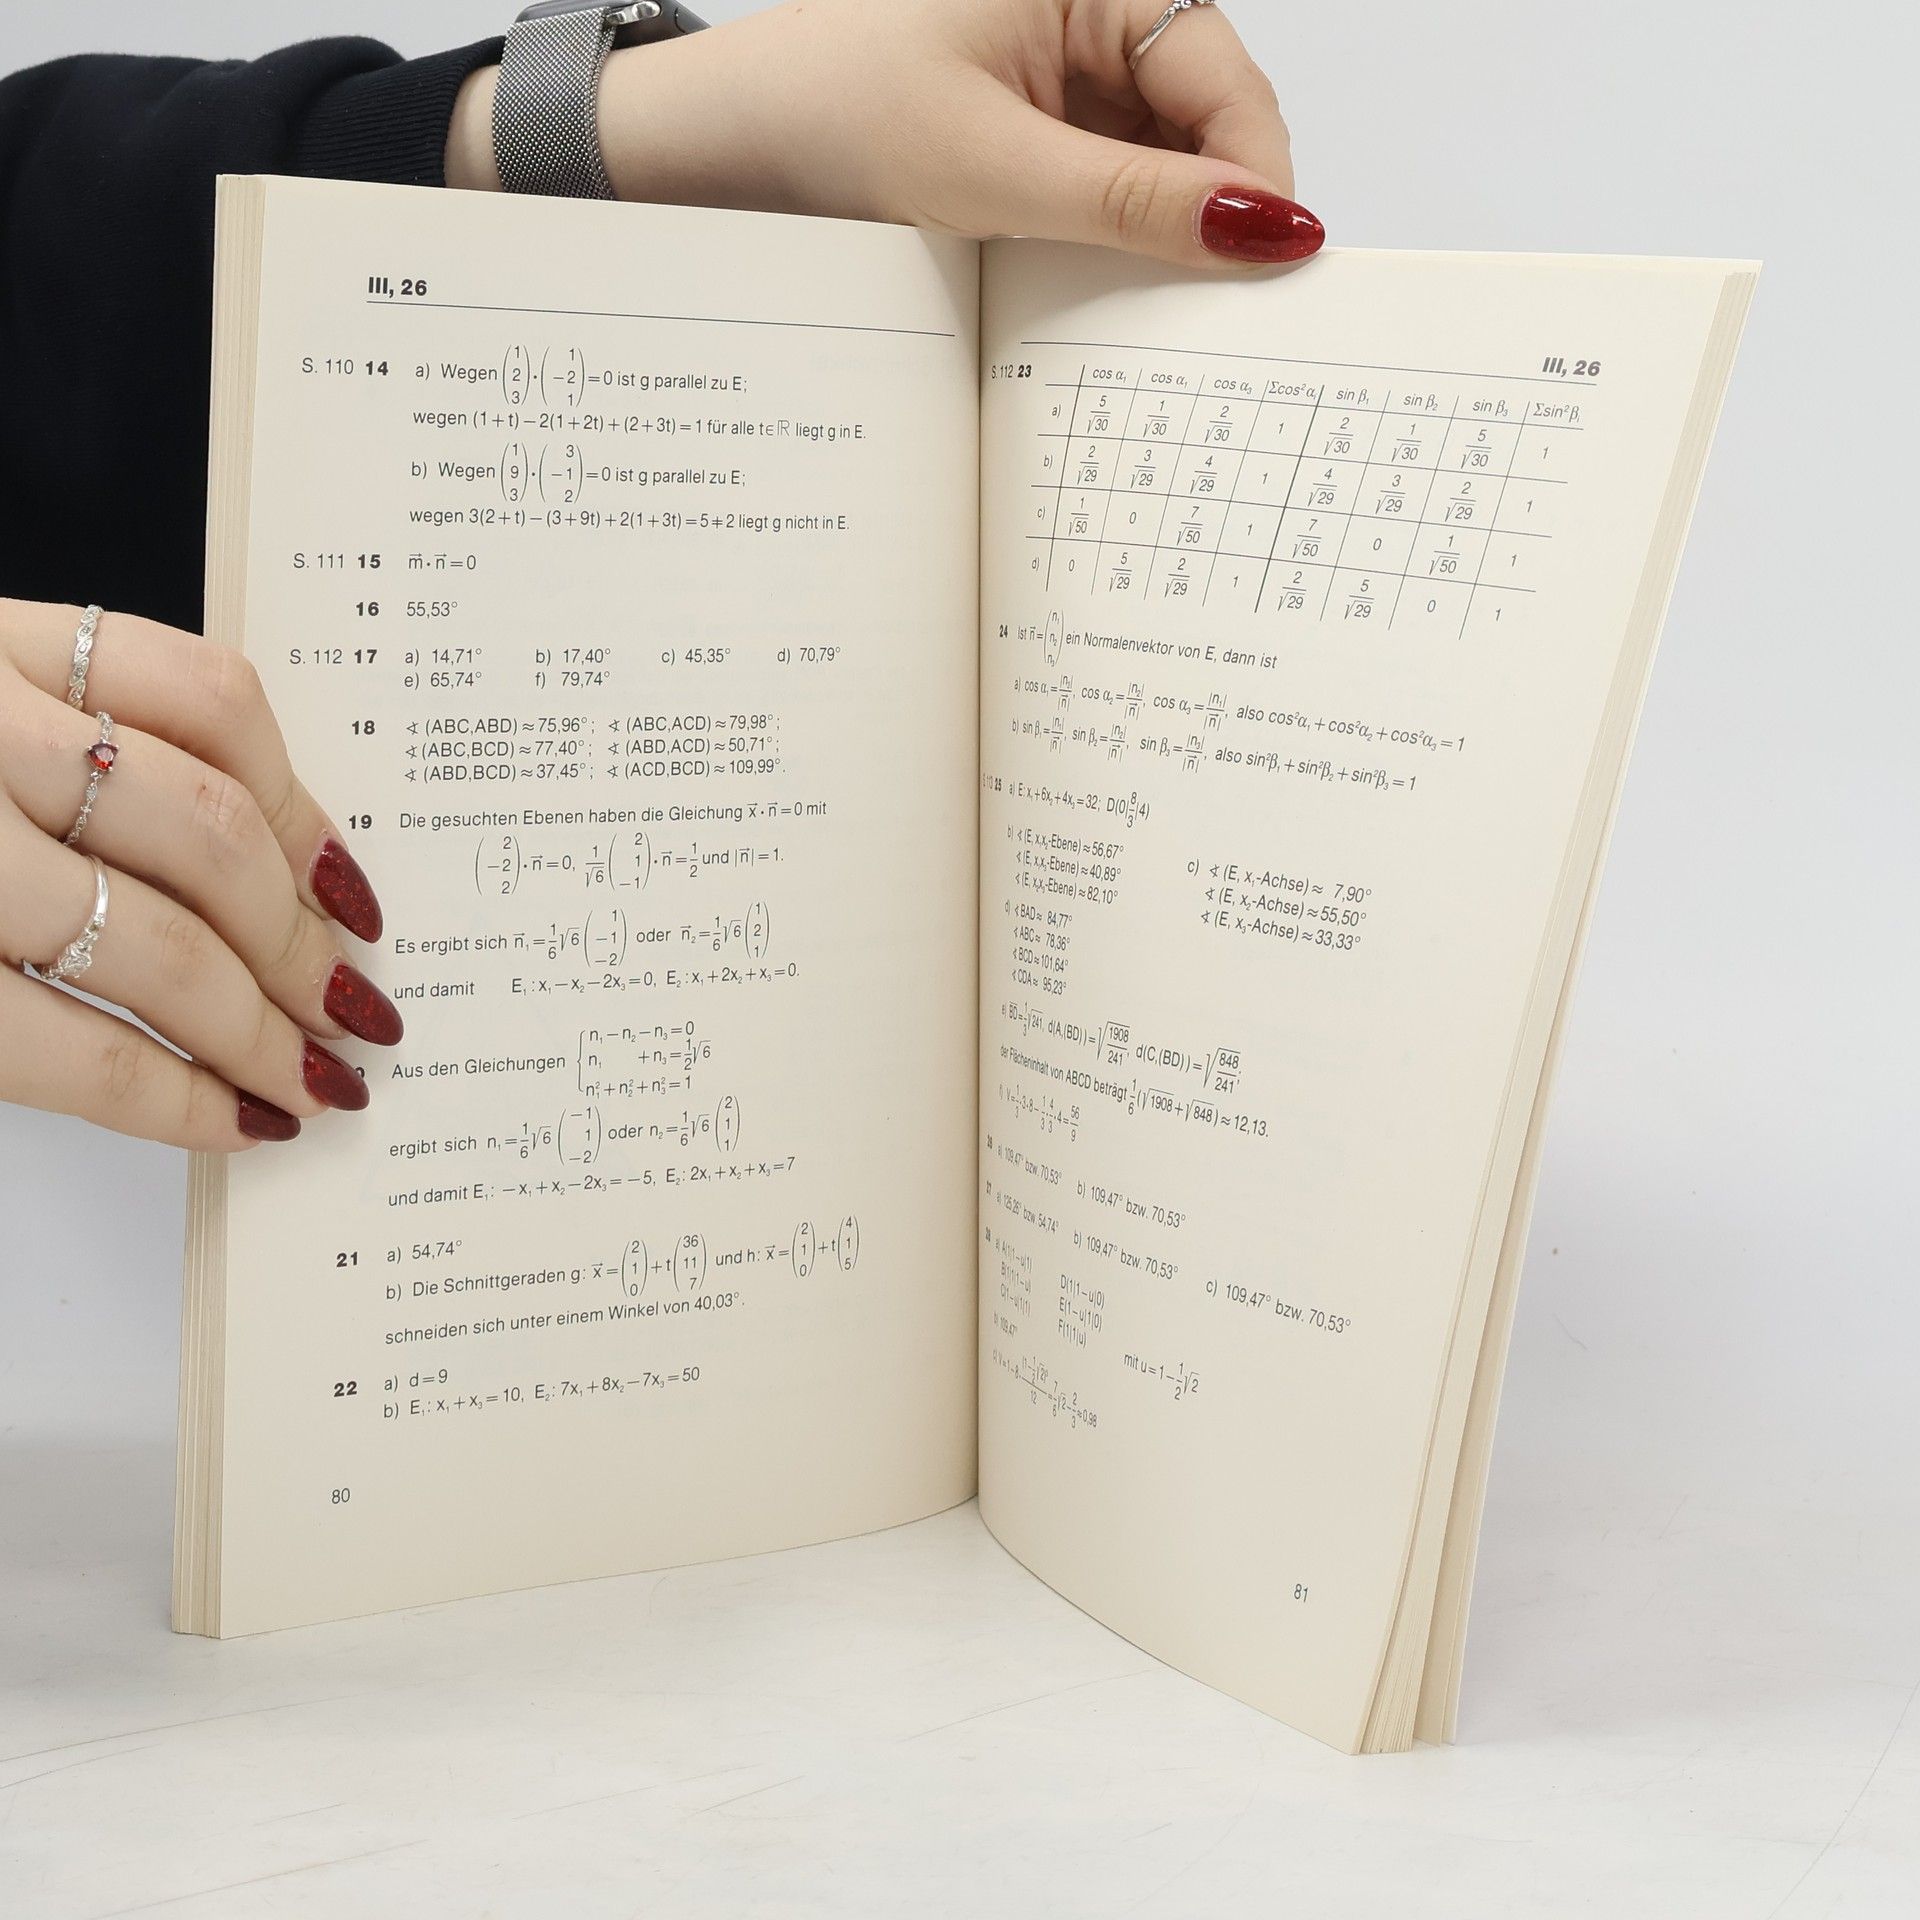 III, 26
S. 110 14 a) Wegen (1 2 3) · (1 −2 1) = 0 ist g parallel zu E;
wegen (1+t) − 2(1+2t) + (2+3t) = 1 für alle t∈ℝ liegt g in E.
b) Wegen (1 9 3) · (3 −1 2) = 0 ist g parallel zu E;
wegen 3(2+t) − (3+9t) + 2(1+3t) = 5 ≠ 2 liegt g nicht in E.
S. 111 15 m⃗ · n⃗ = 0
16 55,53°
S. 112 17 a) 14,71° b) 17,40° c) 45,35° d) 70,79°
e) 65,74° f) 79,74°
18 ∢ (ABC,ABD) ≈ 75,96°; ∢ (ABC,ACD) ≈ 79,98°;
∢ (ABC,BCD) ≈ 77,40°; ∢ (ABD,ACD) ≈ 50,71°;
∢ (ABD,BCD) ≈ 37,45°; ∢ (ACD,BCD) ≈ 109,99°.
19 Die gesuchten Ebenen haben die Gleichung x⃗ · n⃗ = 0 mit
(2 −2 2) · n⃗ = 0, 1/√6 (2 1 −1) · n⃗ = 1/2 und |n⃗| = 1.
Es ergibt sich n⃗₁ = 1/6 √6 (1 −1 −2) oder n⃗₂ = 1/6 √6 (1 2 1)
und damit E₁: x₁ − x₂ − 2x₃ = 0, E₂: x₁ + 2x₂ + x₃ = 0.
Aus den Gleichungen { n₁ − n₂ − n₃ = 0
n₁ + n₃ = 1/2 √6
n₁² + n₂² + n₃² = 1
ergibt sich n₁ = 1/6 √6 (−1 1 −2) oder n₂ = 1/6 √6 (2 1 1)
und damit E₁: −x₁ + x₂ − 2x₃ = −5, E₂: 2x₁ + x₂ + x₃ = 7
21 a) 54,74°
b) Die Schnittgeraden g: x⃗ = (2 1 0) + t (36 11 7) und h: x⃗ = (2 1 0) + t (4 1 5)
schneiden sich unter einem Winkel von 40,03°.
22 a) d = 9
b) E₁: x₁ + x₃ = 10, E₂: 7x₁ + 8x₂ − 7x₃ = 50
80
III, 26
S. 112 23 cos α₁ cos α₁ cos α₃ Σcos²αᵢ sin β₁ sin β₂ sin β₃ Σsin²βᵢ
a) 5/√30 1/√30 2/√30 1 2/√30 1/√30 5/√30 1
b) 2/√29 3/√29 4/√29 1 4/√29 3/√29 2/√29 1
c) 1/√50 0 7/√50 1 7/√50 0 1/√50 1
d) 0 5/√29 2/√29 1 2/√29 5/√29 0 1
24 Ist n⃗ = (n₁ n₂ n₃) ein Normalenvektor von E, dann ist
a) cos α₁ = |n₃|/|n⃗|, cos α₂ = |n₂|/|n⃗|, cos α₃ = |n₁|/|n⃗|, also cos²α₁ + cos²α₂ + cos²α₃ = 1
b) sin β₁ = |n₁|/|n⃗|, sin β₂ = |n₂|/|n⃗|, sin β₃ = |n₃|/|n⃗|, also sin²β₁ + sin²β₂ + sin²β₃ = 1
25 a) E: x₁ + 6x₂ + 4x₃ = 32; D(0|8/3|4)
b) ∢ (E, x₁x₂-Ebene) ≈ 56,67°
∢ (E, x₁x₃-Ebene) ≈ 40,89°
∢ (E, x₂x₃-Ebene) ≈ 82,10°
c) ∢ (E, x₁-Achse) ≈ 7,90°
∢ (E, x₂-Achse) ≈ 55,50°
∢ (E, x₃-Achse) ≈ 33,33°
d) ∢ BAD ≈ 84,77°
∢ ABC ≈ 78,36°
∢ BCD ≈ 101,64°
∢ CDA ≈ 95,23°
e) BD = 1/3 √241, d(A,(BD)) = √(1908/241), d(C,(BD)) = √(848/241);
der Flächeninhalt von ABCD beträgt 1/6 (√1908 + √848) ≈ 12,13.
f) V = 1/3 · 3 · 8 − 1/3 · 4/3 · 4 = 56/9
26 a) 109,47° bzw. 70,53° b) 109,47° bzw. 70,53°
27 a) 125,26° bzw. 54,74° b) 109,47° bzw. 70,53° c) 109,47° bzw. 70,53°
28 a) A(1|1−u|1) D(1|1−u|0)
B(1|1|1−u) E(1−u|1|0)
C(1−u|1|1) F(1|1|u) mit u = 1 − 1/2 √2
b) 109,47°
81